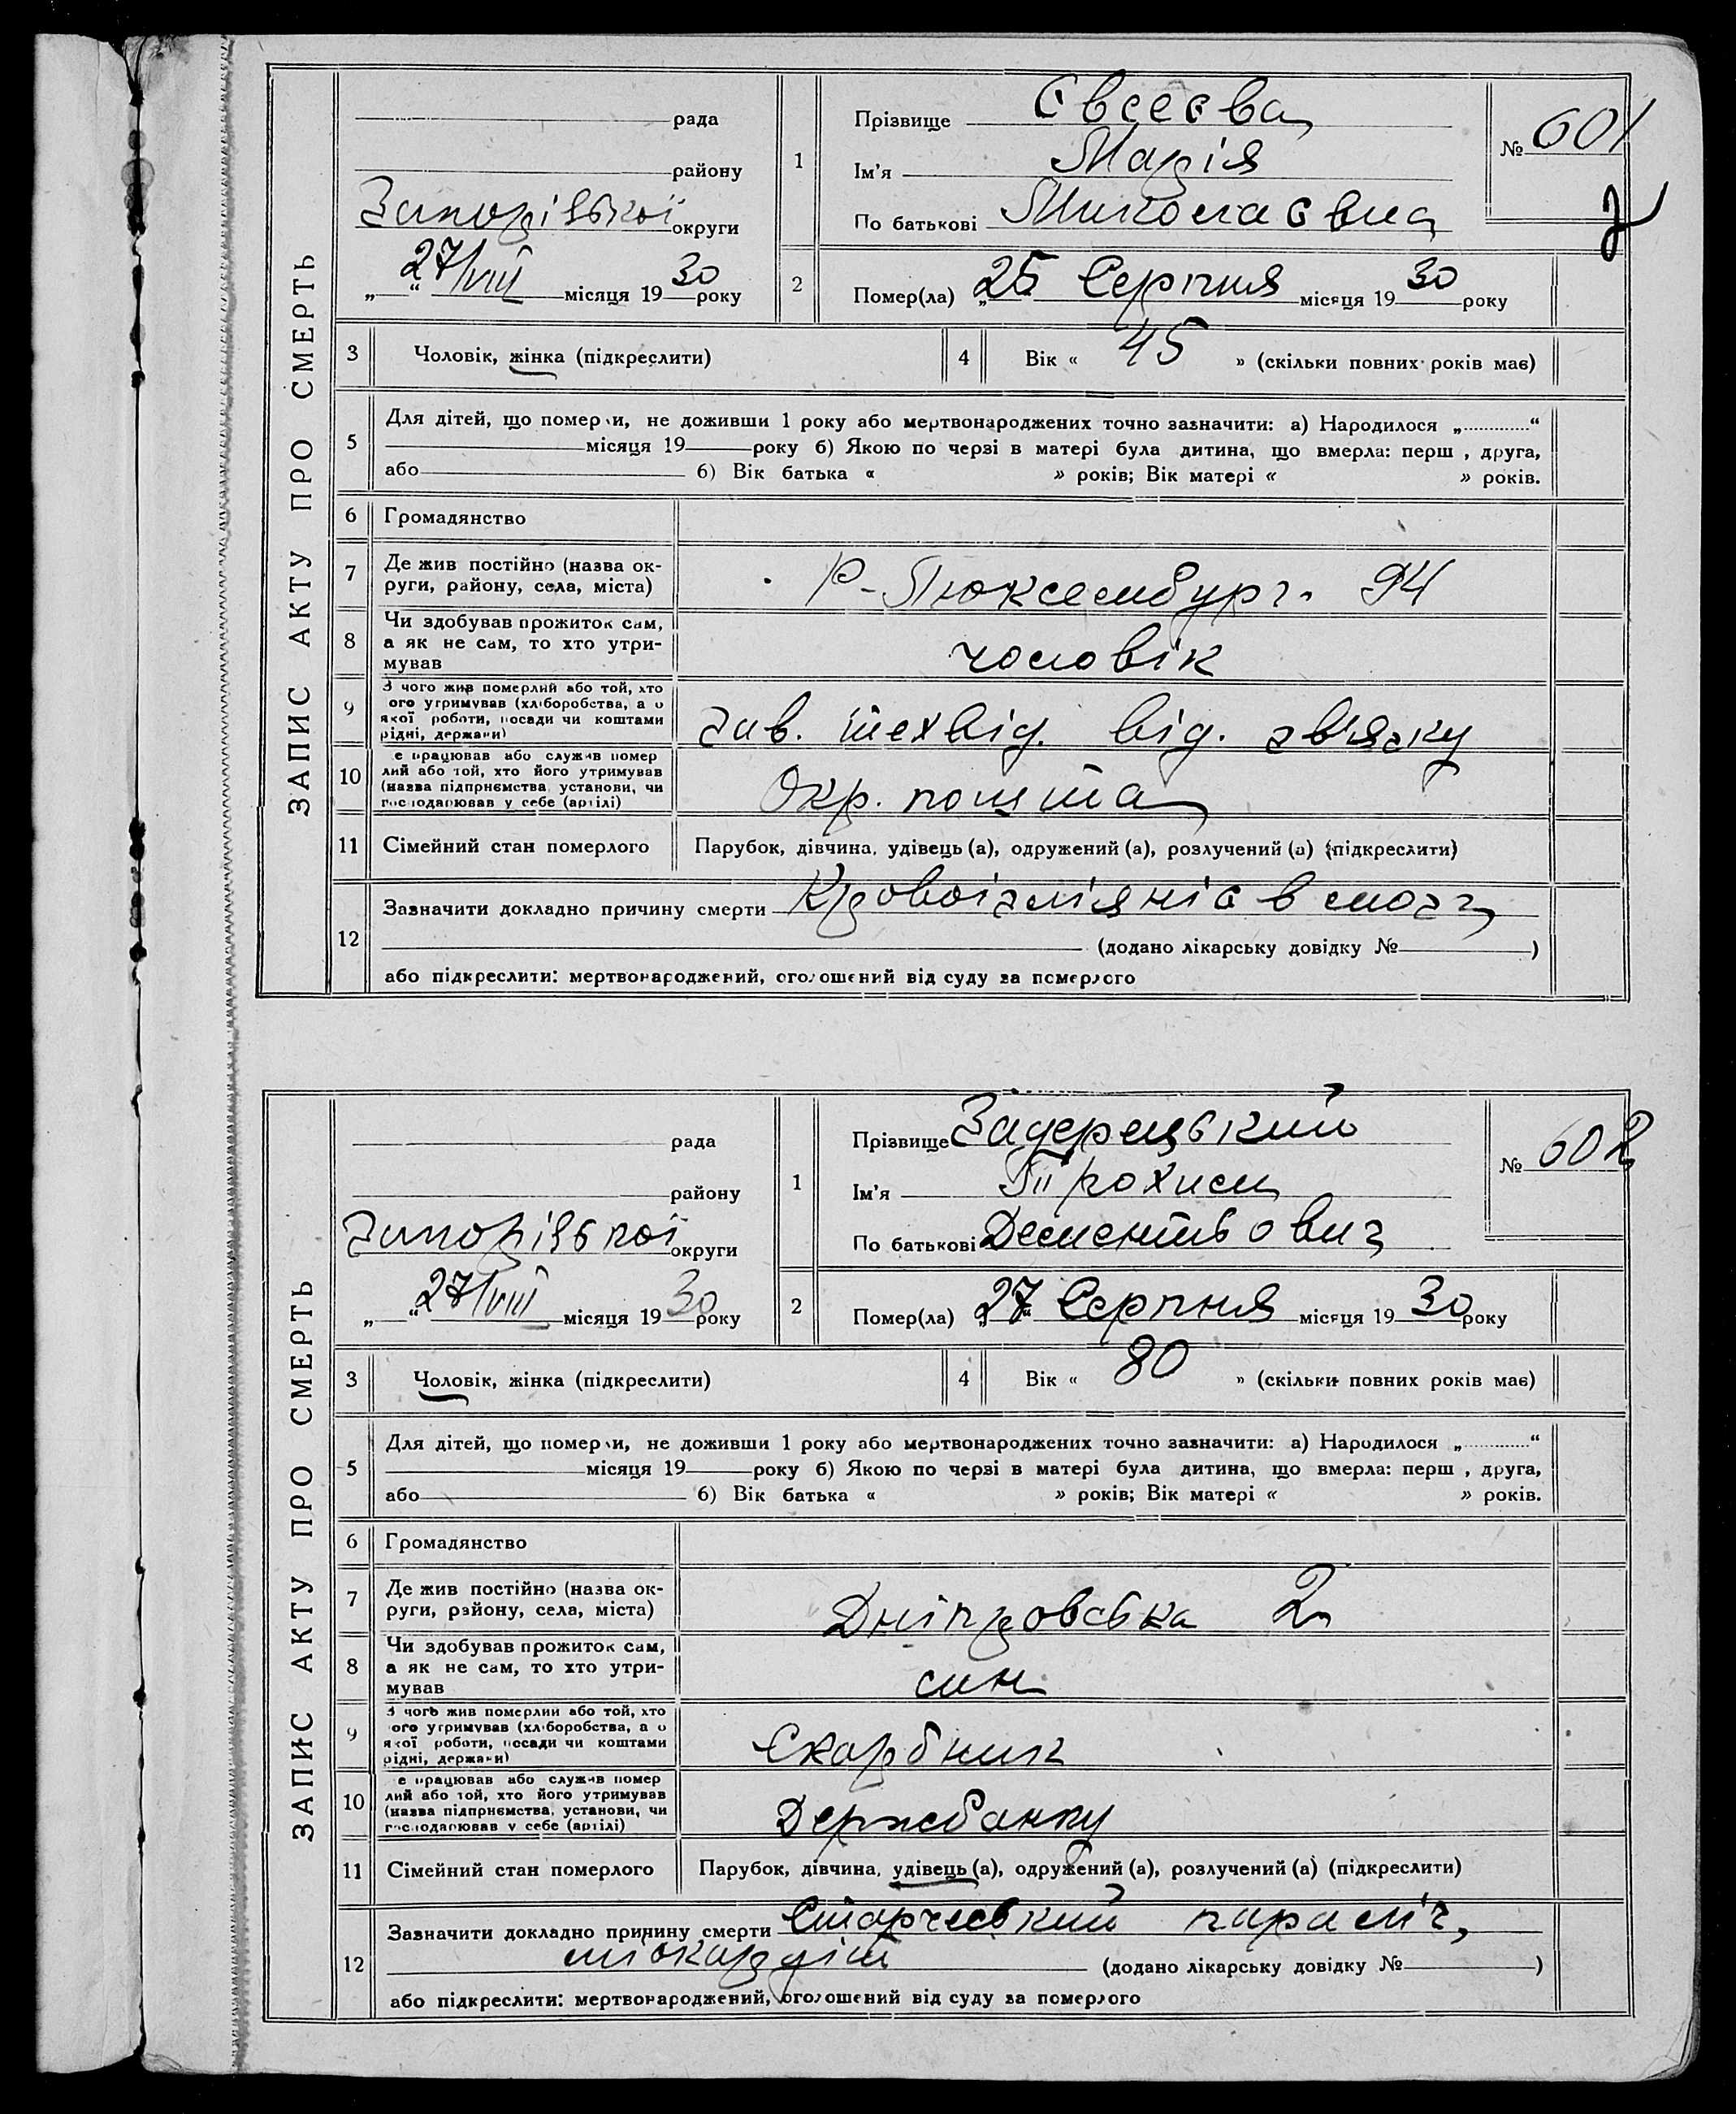 ЗАПИС АКТУ ПРО СМЕРТЬ
рада
району
Запорізької округи
„ “ 27/VIII місяця 1930 року
1
Прізвище Євсєєва
Ім'я Марія
По батькові Миколаєвна
№ 601
2
Помер(ла) „25 Серпня місяця 1930 року
3 Чоловік, жінка (підкреслити)
4 Вік « 45 » (скільки повних років має)
5 Для дітей, що помер и, не доживши 1 року або мертвонароджених точно зазначити: а) Народилося „ “
місяця 19 року б) Якою по черзі в матері була дитина, що вмерла: перш , друга,
або б) Вік батька « » років; Вік матері « » років.
6 Громадянство
7 Де жив постійно (назва ок-
руги, району, села, міста)
Р-Люксембург. 94
8 Чи здобував прожиток сам,
а як не сам, то хто утри-
мував
чоловік
9 З чого жив померлий або той, хто
ого утримував (хліборобства, а о
якої роботи, посади чи коштами
рідні, держави)
зав. техвід. від. зв'язку
10 е працював або служив помер
лий або той, хто його утримував
(назва підприємства, установи, чи
господарював у себе (артілі)
Окр. пошта
11 Сімейний стан померлого Парубок, дівчина, удівець (а), одружений (а), розлучений (а) (підкреслити)
12 Зазначити докладно причину смерти в мозг
(додано лікарську довідку № )
або підкреслити: мертвонароджений, оголошений від суду за померлого
ЗАПИС АКТУ ПРО СМЕРТЬ
рада
району
Запорізької округи
„ “ 27/VIII місяця 1930 року
1
Прізвище Задерецький
Ім'я Трохим
По батькові Дементьович
№ 602
2
Помер(ла) „27 Серпня місяця 1930 року
3 Чоловік, жінка (підкреслити)
4 Вік « 80 » (скільки повних років має)
5 Для дітей, що помер и, не доживши 1 року або мертвонароджених точно зазначити: а) Народилося „ “
місяця 19 року б) Якою по черзі в матері була дитина, що вмерла: перш , друга,
або б) Вік батька « » років; Вік матері « » років.
6 Громадянство
7 Де жив постійно (назва ок-
руги, району, села, міста)
Дніпровська 2
8 Чи здобував прожиток сам,
а як не сам, то хто утри-
мував
син
9 З чого жив померлий або той, хто
ого утримував (хліборобства, а о
якої роботи, посади чи коштами
рідні, держави)
Скарбник
10 е працював або служив помер
лий або той, хто його утримував
(назва підприємства, установи, чи
господарював у себе (артілі)
Держбанку
11 Сімейний стан померлого Парубок, дівчина, удівець (а), одружений (а), розлучений (а) (підкреслити)
12 Зазначити докладно причину смерти Старчеський параліч,
міокардіт (додано лікарську довідку № )
або підкреслити: мертвонароджений, оголошений від суду за померлого